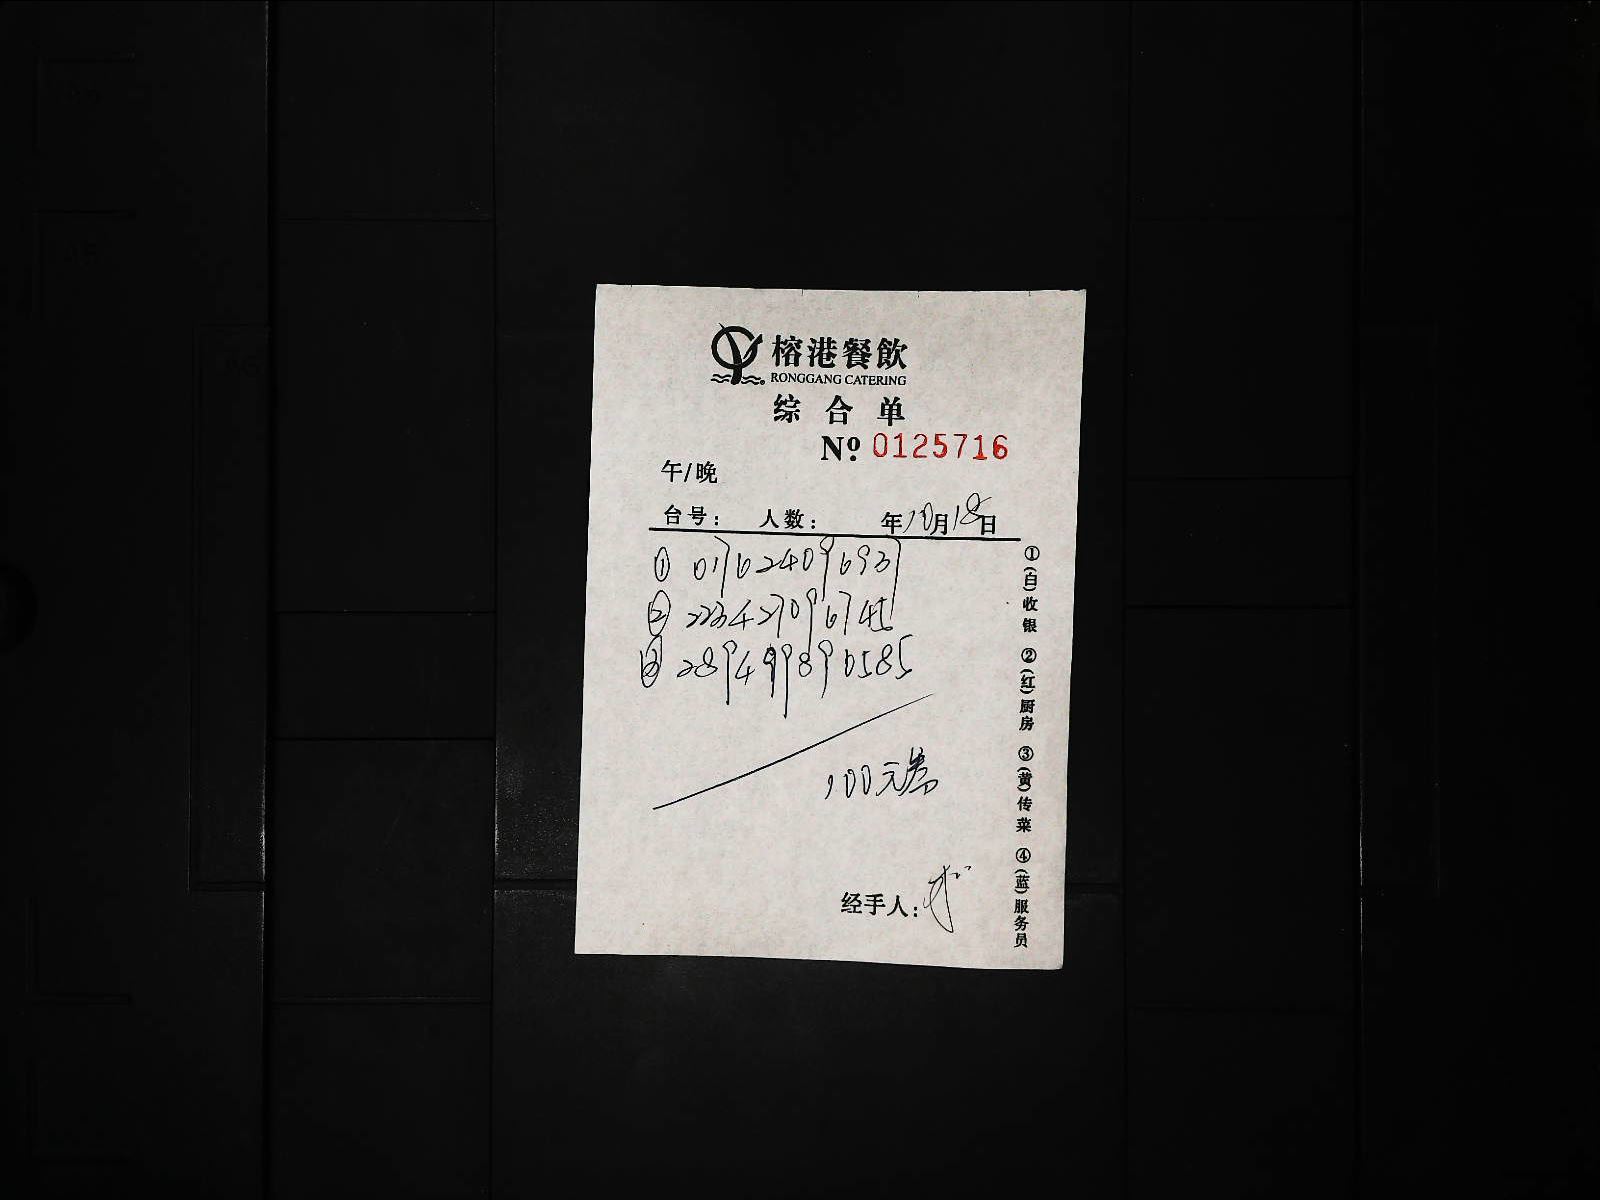 榕港餐飲
RONGGANG CATERING
综合单
Nº 0125716
午/晚
台号: 人数: 年10月18日
① 017624096937
② 223427096745
③ 289499890585
100元券
经手人:
①(白)收银 ②(红)厨房 ③(黄)传菜 ④(蓝)服务员